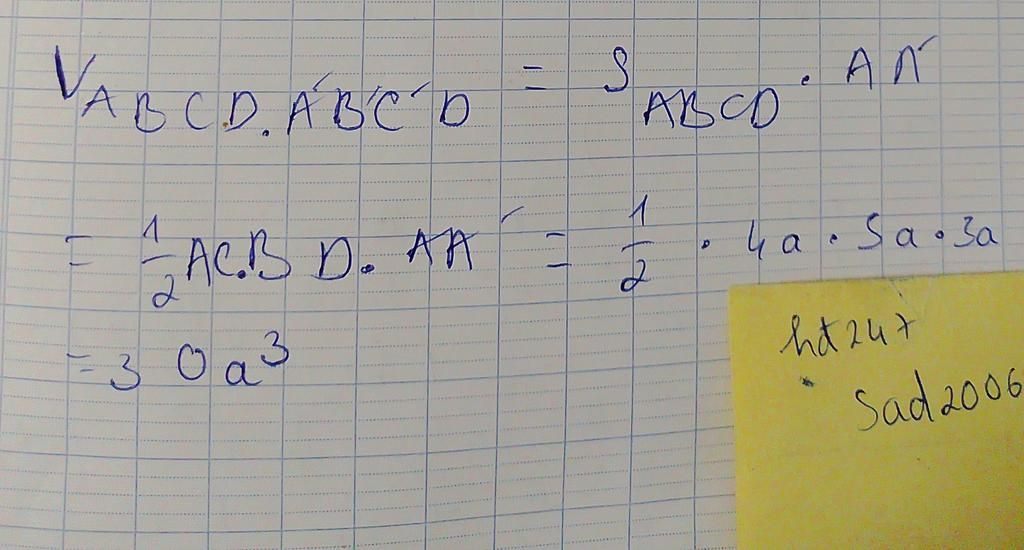 V ABCD.A'B'C'D = S ABCD . AA'
= 1/2 AC.BD. AA' = 1/2 . 4a . 5a . 3a
= 30a³
hd247
Sad2006